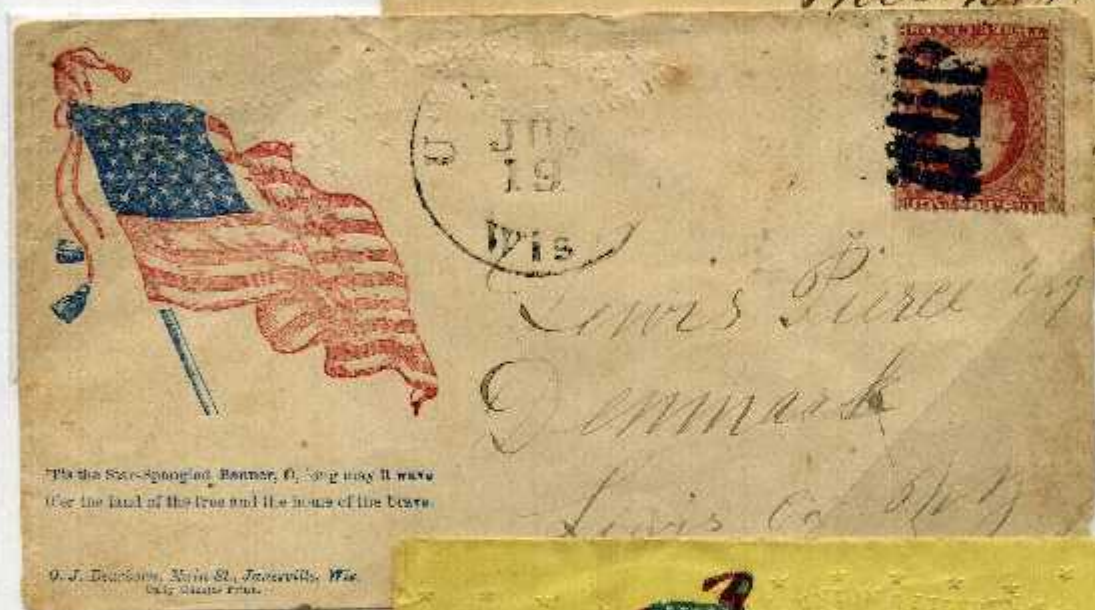 U
JU
19
Wis
Lewis Pierce Esq
Denmark
Lewis Co N Y
'Tis the Star-Spangled Banner, O, long may it wave
O'er the land of the free and the home of the brave.
O. J. Dearborn, Main St., Janesville, Wis.